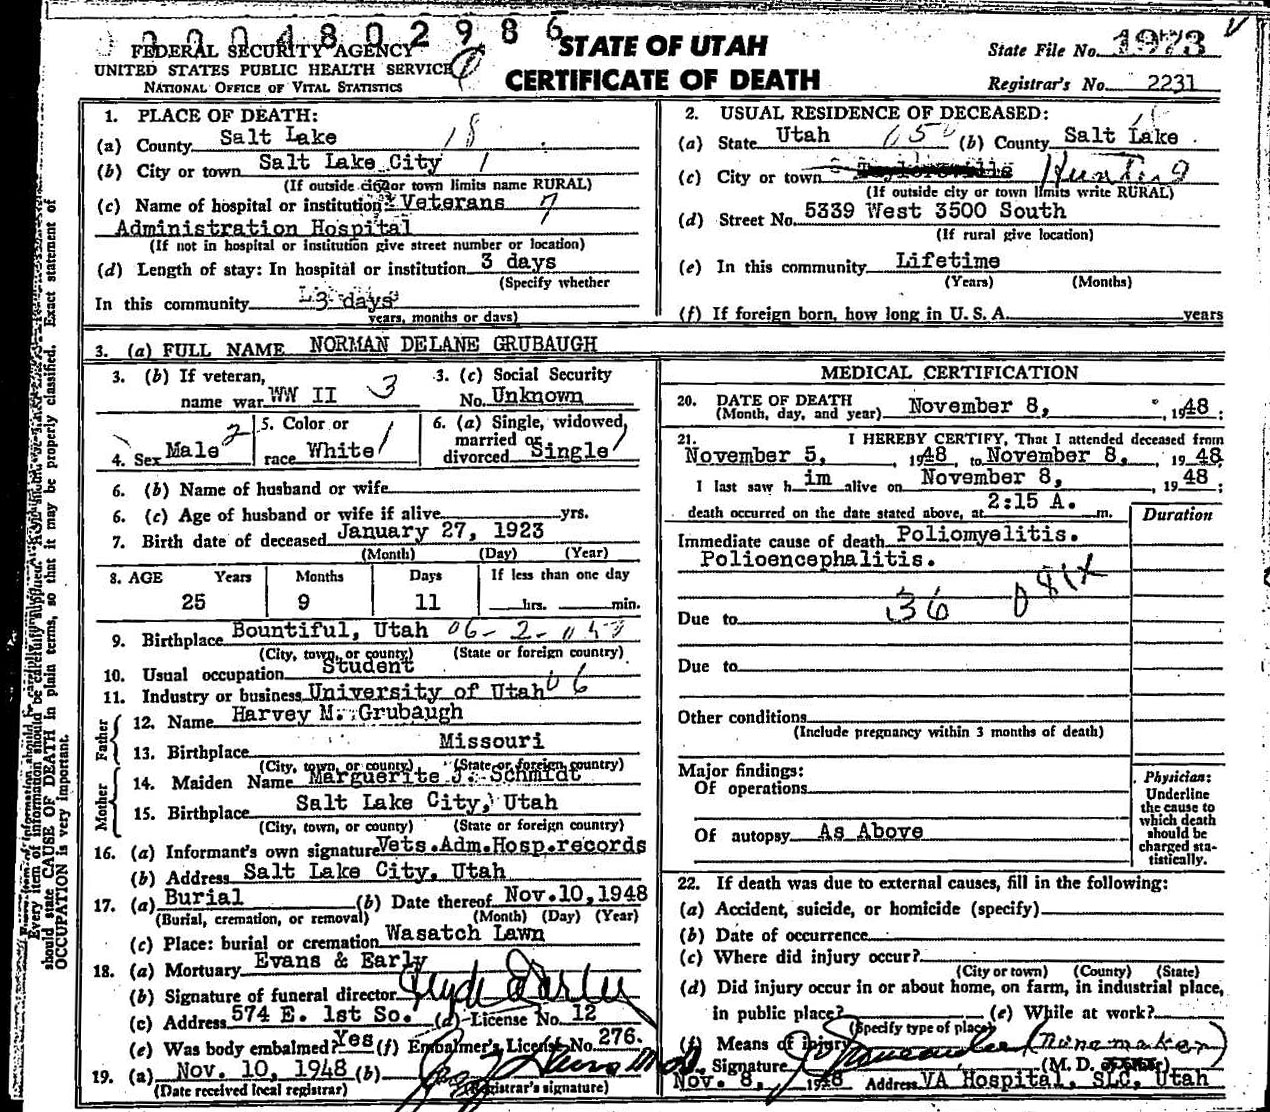 0004802986
FEDERAL SECURITY AGENCY
UNITED STATES PUBLIC HEALTH SERVICE
NATIONAL OFFICE OF VITAL STATISTICS
STATE OF UTAH
CERTIFICATE OF DEATH
State File No. 1973
Registrar's No. 2231
1. PLACE OF DEATH:
(a) County Salt Lake 18
(b) City or town Salt Lake City 1
(If outside city or town limits name RURAL)
(c) Name of hospital or institution: Veterans 7
Administration Hospital
(If not in hospital or institution give street number or location)
(d) Length of stay: In hospital or institution 3 days
(Specify whether
In this community 3 days
years, months or days)
2. USUAL RESIDENCE OF DECEASED:
(a) State Utah (b) County Salt Lake
(c) City or town Hunter
(If outside city or town limits write RURAL)
(d) Street No. 5339 West 3500 South
(If rural give location)
(e) In this community Lifetime
(Years) (Months)
(f) If foreign born, how long in U. S. A. years
3. (a) FULL NAME NORMAN DELANE GRUBAUGH
3. (b) If veteran,
name war WW II 3
3. (c) Social Security
No. Unknown
4. Sex Male 2
5. Color or
race White 1
6. (a) Single, widowed,
married or
divorced Single
6. (b) Name of husband or wife
6. (c) Age of husband or wife if alive yrs.
7. Birth date of deceased January 27, 1923
(Month) (Day) (Year)
8. AGE Years Months Days If less than one day
25 9 11 hrs. min.
9. Birthplace Bountiful, Utah
(City, town, or county) (State or foreign country)
10. Usual occupation Student
11. Industry or business University of Utah
Father
12. Name Harvey M. Grubaugh
13. Birthplace Missouri
(City, town, or county) (State or foreign country)
Mother
14. Maiden Name Marguerite J. Schmidt
15. Birthplace Salt Lake City, Utah
(City, town, or county) (State or foreign country)
16. (a) Informant's own signature Vets.Adm.Hosp.records
(b) Address Salt Lake City, Utah
17. (a) Burial (b) Date thereof Nov.10,1948
(Burial, cremation, or removal) (Month) (Day) (Year)
(c) Place: burial or cremation Wasatch Lawn
18. (a) Mortuary Evans & Early
(b) Signature of funeral director
(c) Address 574 E. 1st So. (d) License No. 12
(e) Was body embalmed? Yes (f) Embalmer's License No. 276.
19. (a) Nov. 10, 1948 (b)
(Date received local registrar) (Registrar's signature)
MEDICAL CERTIFICATION
20. DATE OF DEATH
(Month, day, and year) November 8, , 1948 ;
21. I HEREBY CERTIFY, That I attended deceased from
November 5, , 1948, to November 8, , 1948
I last saw him alive on November 8, , 1948 ;
death occurred on the date stated above, at 2:15 A. m.
Duration
Immediate cause of death Poliomyelitis.
Polioencephalitis.
Due to 36
Due to
Other conditions
(Include pregnancy within 3 months of death)
Major findings:
Of operations
Of autopsy As Above
Physician:
Underline
the cause to
which death
should be
charged sta-
tistically.
22. If death was due to external causes, fill in the following:
(a) Accident, suicide, or homicide (specify)
(b) Date of occurrence
(c) Where did injury occur?
(City or town) (County) (State)
(d) Did injury occur in or about home, on farm, in industrial place,
in public place? (e) While at work?
(Specify type of place)
(f) Means of injury
Signature (M. D. or other)
Nov. 8, 1948 Address VA Hospital, SLC, Utah
Every item of information should be carefully supplied. AGE should be stated EXACTLY. PHYSICIANS
should state CAUSE OF DEATH in plain terms, so that it may be properly classified. Exact statement of
OCCUPATION is very important.